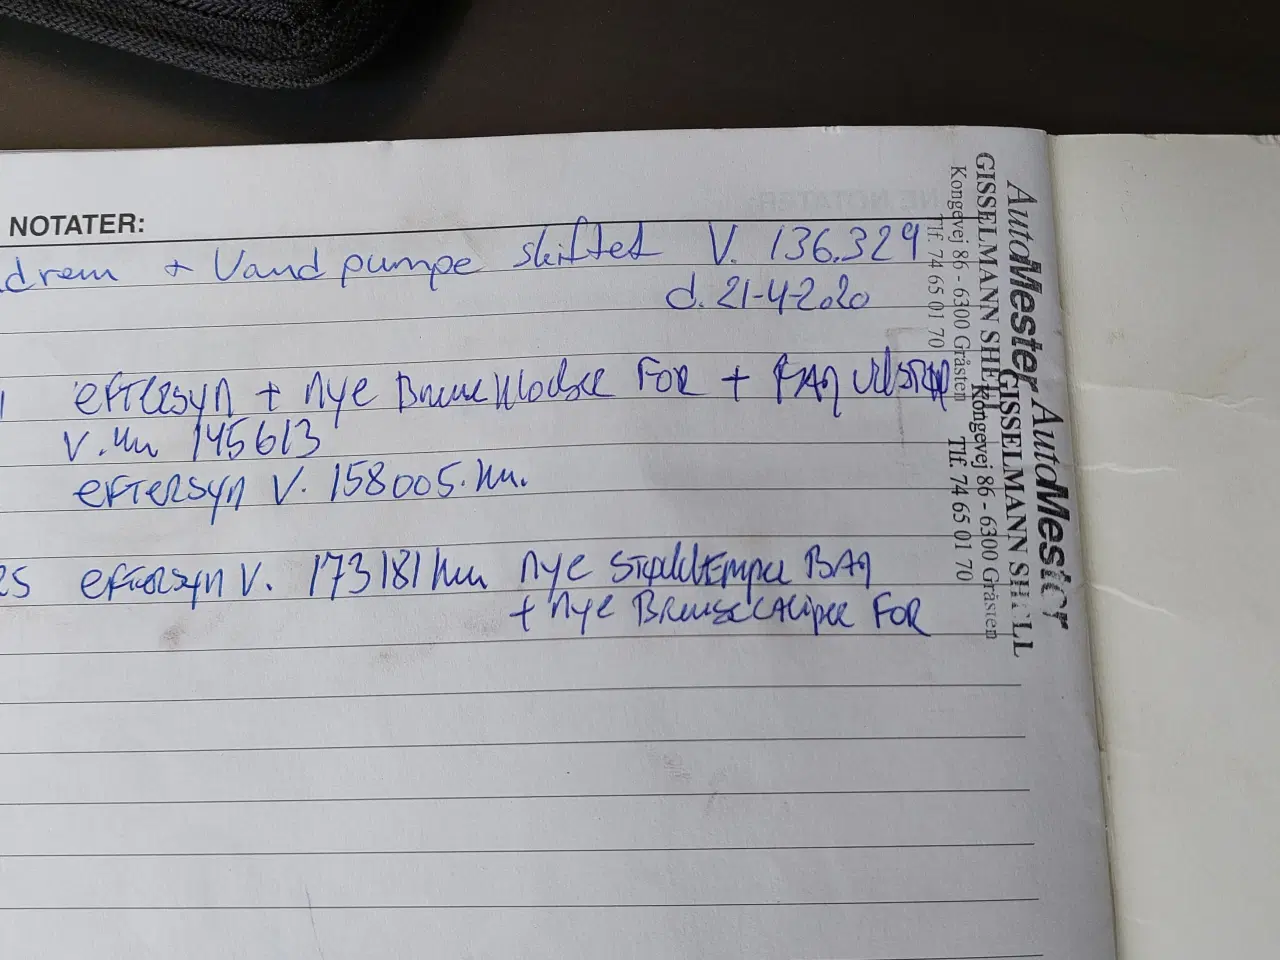 NOTATER:
drem + Vandpumpe skiftet V. 136.329
d. 21-4-2020
eftersyn + nye Bremseklodser FOR + BAG
V. km 145613
eftersyn V. 158005. km.
25 eftersyn V. 173181 km nye Støddæmpere BAG
+ nye Bremsecalipre FOR
AutoMester
GISSELMANN SHELL
Kongevej 86 - 6300 Gråsten
Tlf. 74 65 01 70
AutoMester
GISSELMANN SHELL
Kongevej 86 - 6300 Gråsten
Tlf. 74 65 01 70